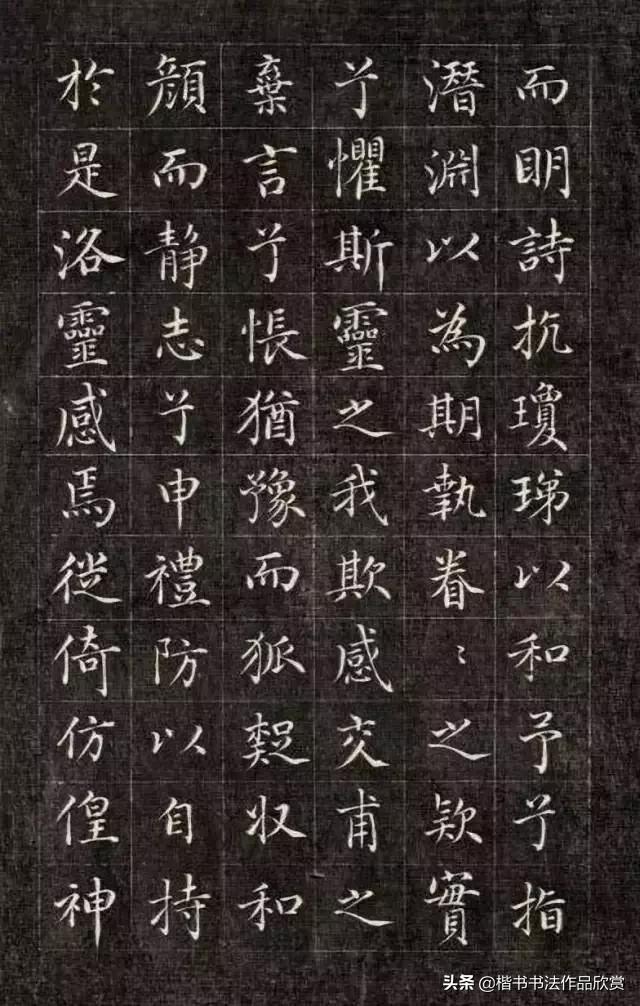 而明詩抗瓊珶以和予兮指
潛淵以為期執眷〻之欵實
兮懼斯靈之我欺感交甫之
棄言兮悵猶豫而狐疑収和
顏而静志兮申禮防以自持
於是洛靈感焉徙倚仿偟神
头条 @楷书书法作品欣赏